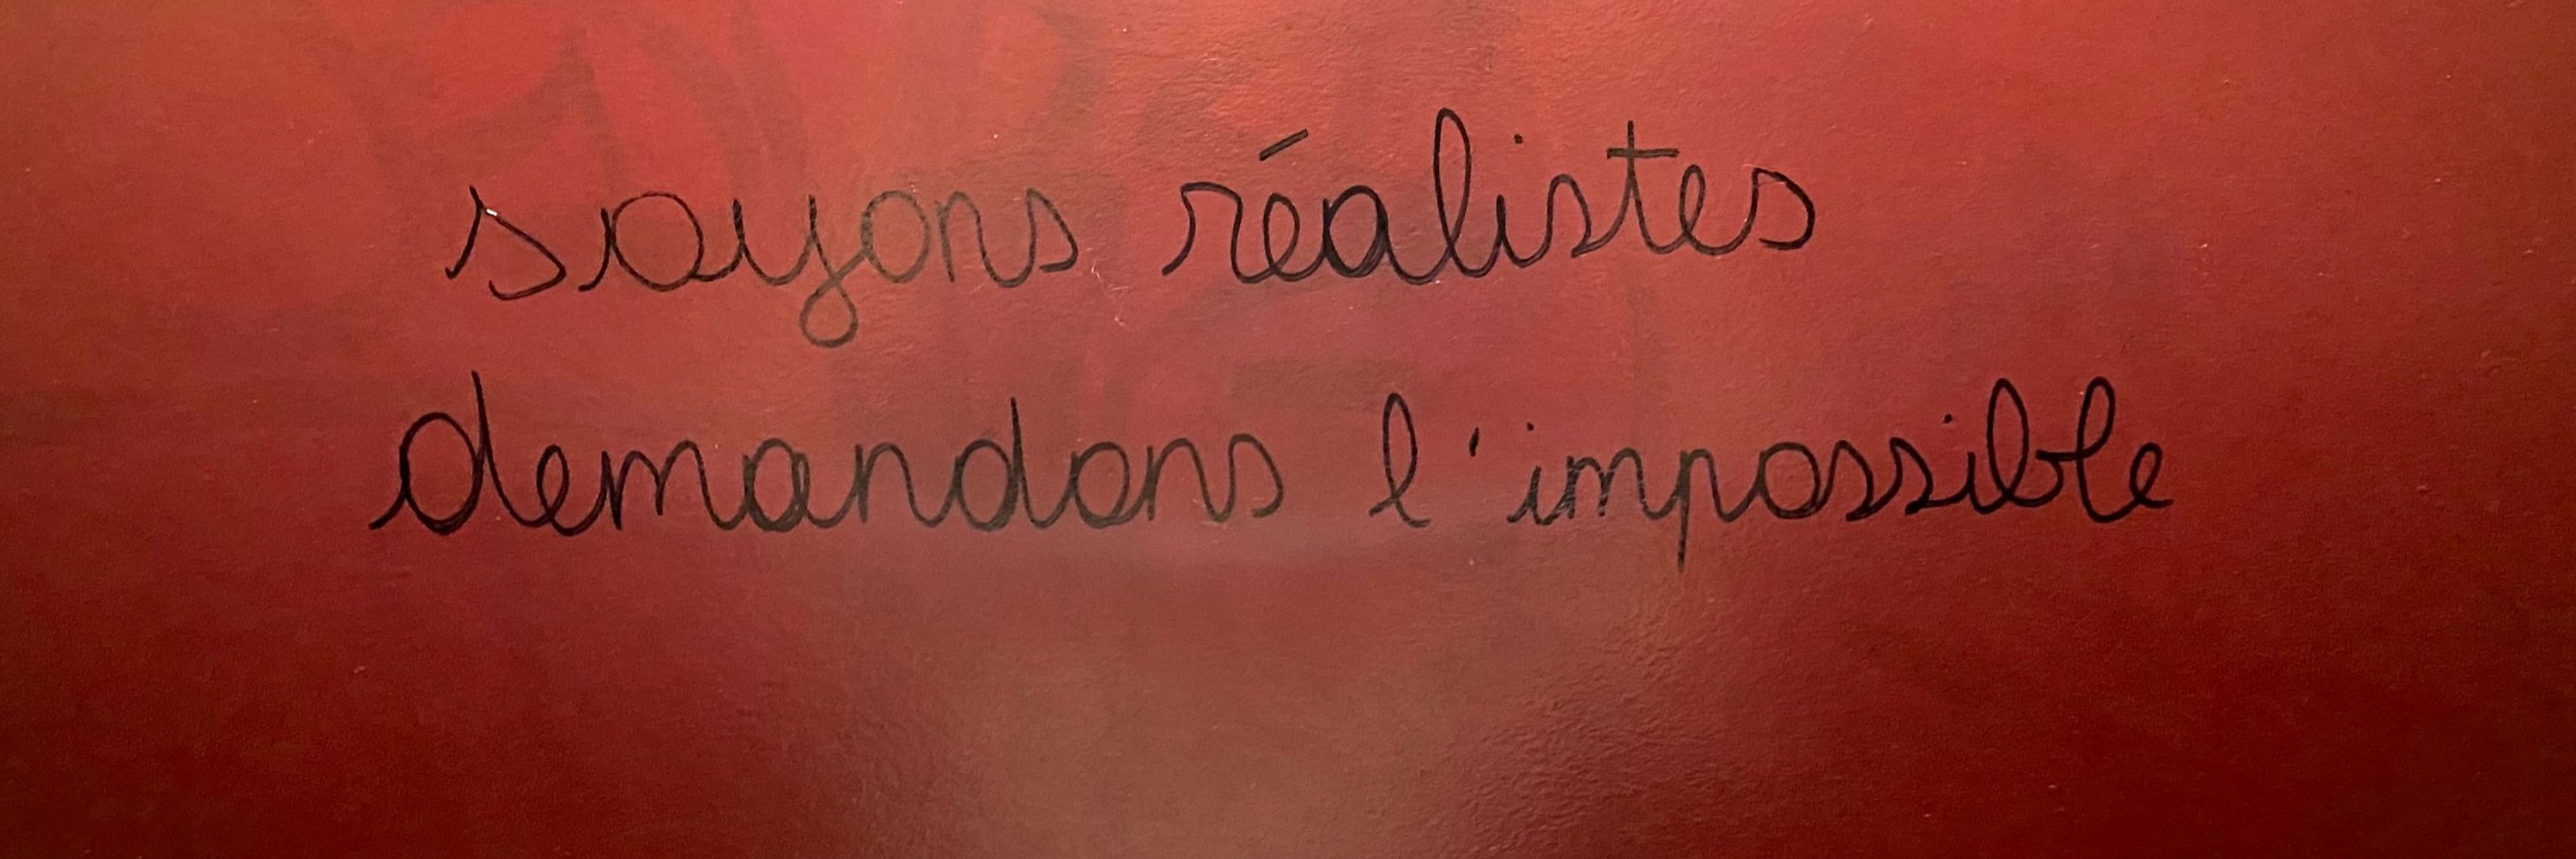 soyons réalistes
demandons l'impossible